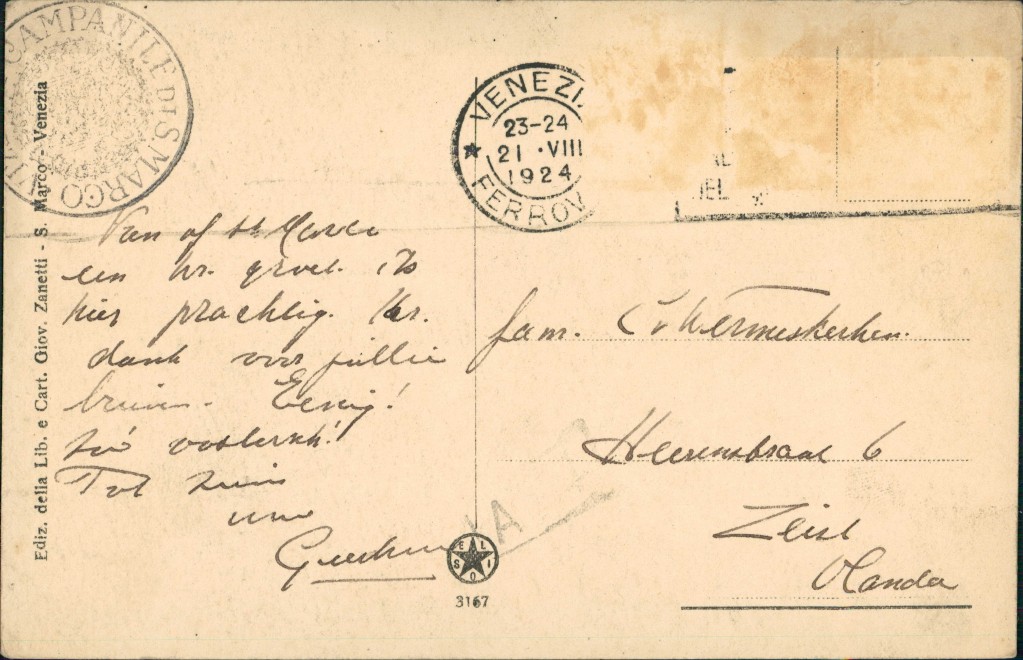 CAMPANILE DI S. MARCO
Ediz. della Lib. e Cart. Giov. Zanetti - S. Marco - Venezia
VENEZI
23-24
21 · VIII
1924
FERROV
Van af St. Marco
een hr. groet. Is
hier prachtig. Hr.
dank voor jullie
brieven. Eenig!
Zie
Tot ziens
uw
fam. C v Wermeskerken.
Heerenstraat 6
Zeist
Olanda
ELIOS
3167